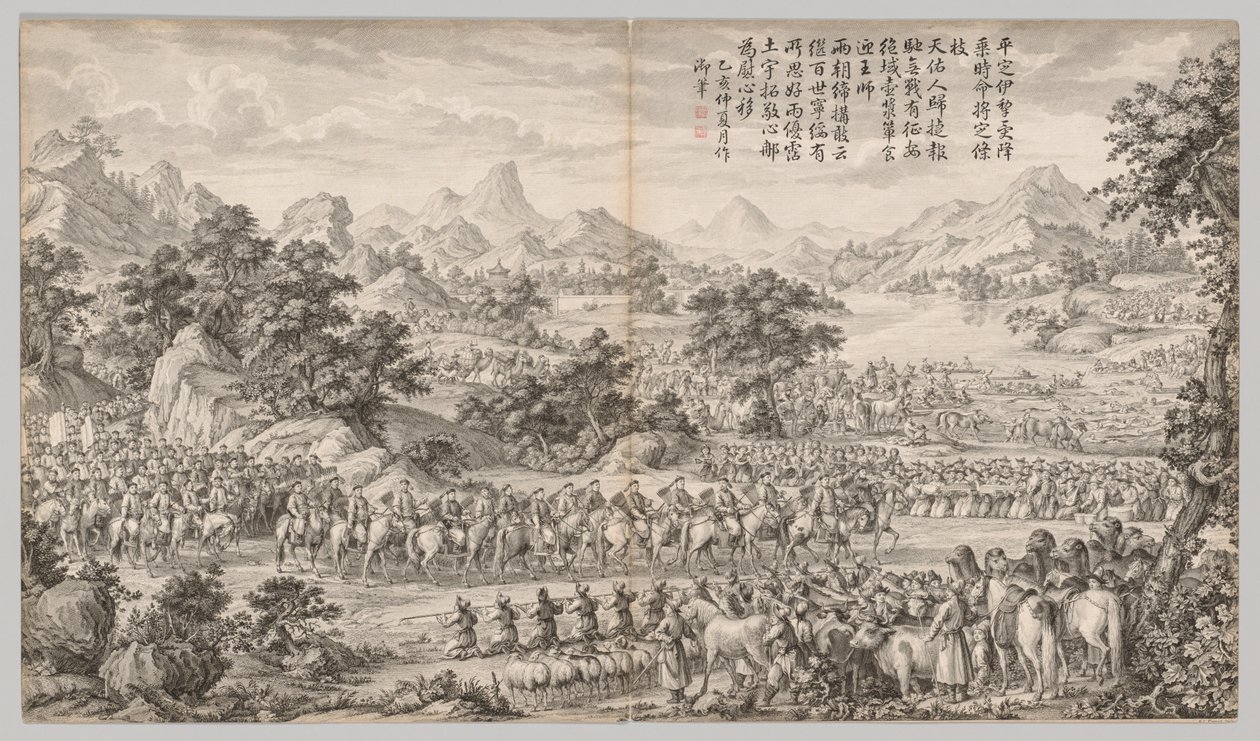 平定伊犂受降
乗時命將定條
枝
天佑人歸捷報
馳無戰有征安
絶域壺漿簞食
迎王師
兩朝締搆敢云
繼百世寧綏有
所思好雨優霑
土宇拓敬心那
為慰心移
乙亥仲夏月作
御筆